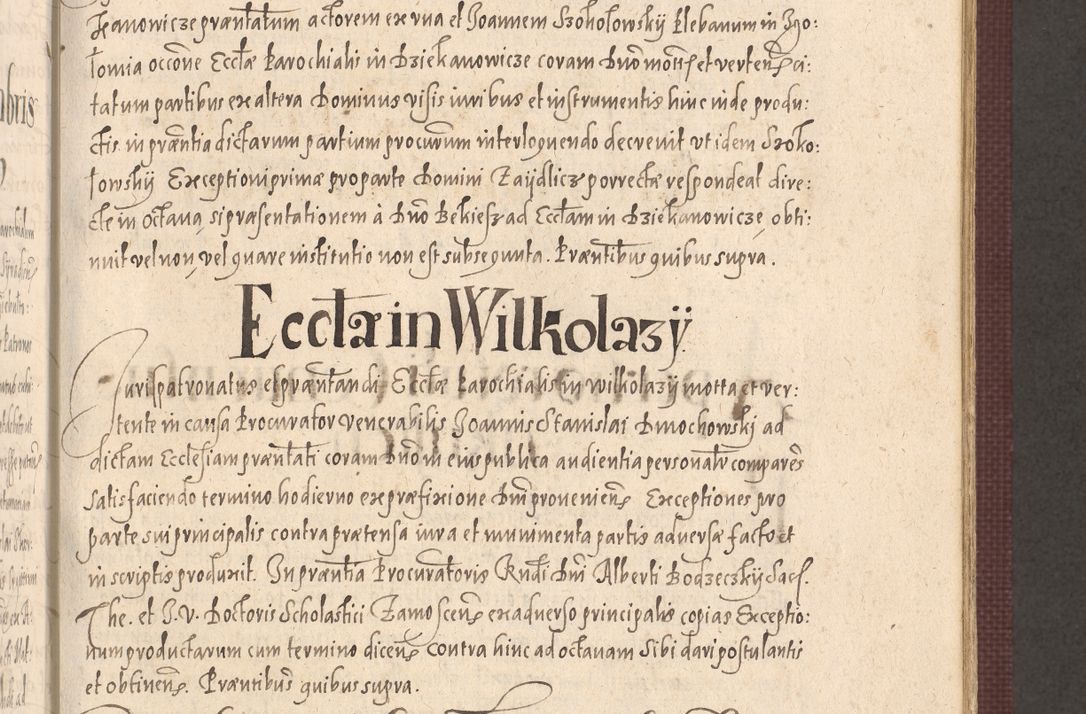 kanowicze præntatum actorem ex vna et Joannem Szokolowskij Plebanum in Zgo:
łomia occone Ecclæ Parochialis in Dziekanowicze coram Dno mon et verten ci:
tatum partibus ex altera Dominus visis iuribus et instrumentis hinc inde produ:
ctis in præntia dictarum partium procurum interloquendo decreuit vt idem Szoko:
lowskij Exceptioni primæ pro parte Domini Zaydlicz porrectæ respondeat dire:
cte in octaua, si præsentationem à Dno Bekiesz ad Ecclam in Dziekanowicze, obti:
nuit vel non, vel quare institutio non est subsequuta. Præntibus quibus supra.
Eccla in Wilkolazÿ
Jurispatronatus et præntandi Ecclæ Parochialis in wilkolazÿ motta et ver:
tente in causa Procurator venerabilis Joannis Stanislai Dmochowskj ad
dictam Ecclesiam præntati coram Dno in eius publica audientia personalr compares
satisfaciendo termino hodierno ex præfixione Dni proueniens Exceptiones pro
parte sui principalis contra prætensa iura et munimenta partis aduersæ facto et
in scriptis produxit. In præntia Procuratoris Rndi Dni Alberti Bodzeczkÿ Sacs.
The. et J. V. Doctoris Scholastici Zamoscens ex aduerso principalis copias Exceptio:
num productarum cum termino dicens contra hinc ad octauam sibi dari postulantis
et obtinens. Præntibus quibus supra.